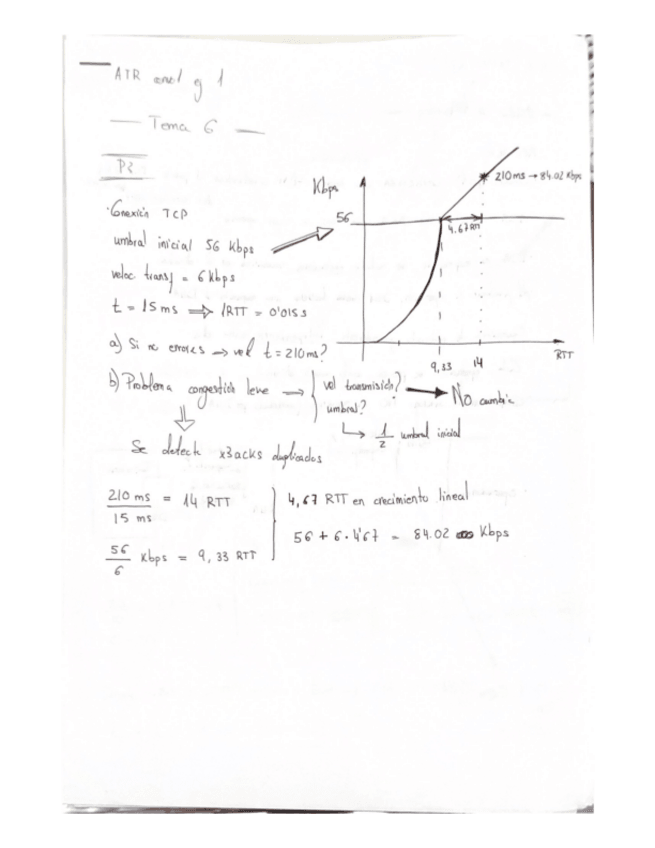 ATR ej 1
— Tema 6 —
P2
· Conexión TCP
umbral inicial 56 Kbps
veloc. transf = 6 Kbps
t = 15 ms ⇒ 1RTT = 0'015 s
a) Si no errores → vel t = 210 ms?
b) Problema congestión leve → vel transmisión? → No cambia
umbral?
↳ 1/2 umbral inicial
Se detecta x3 acks duplicados
210 ms / 15 ms = 14 RTT
56/6 Kbps = 9,33 RTT
4,67 RTT en crecimiento lineal
56 + 6 · 4'67 = 84.02 Kbps
Kbps
56
210 ms → 84.02 Kbps
4.67 RTT
9,33
14
RTT